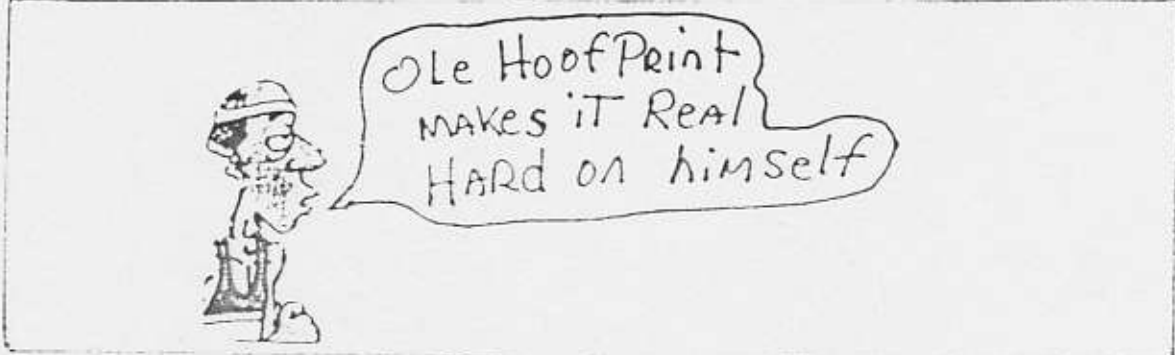 OLe HoofPRint
MAKes iT ReAl
HARd on himself